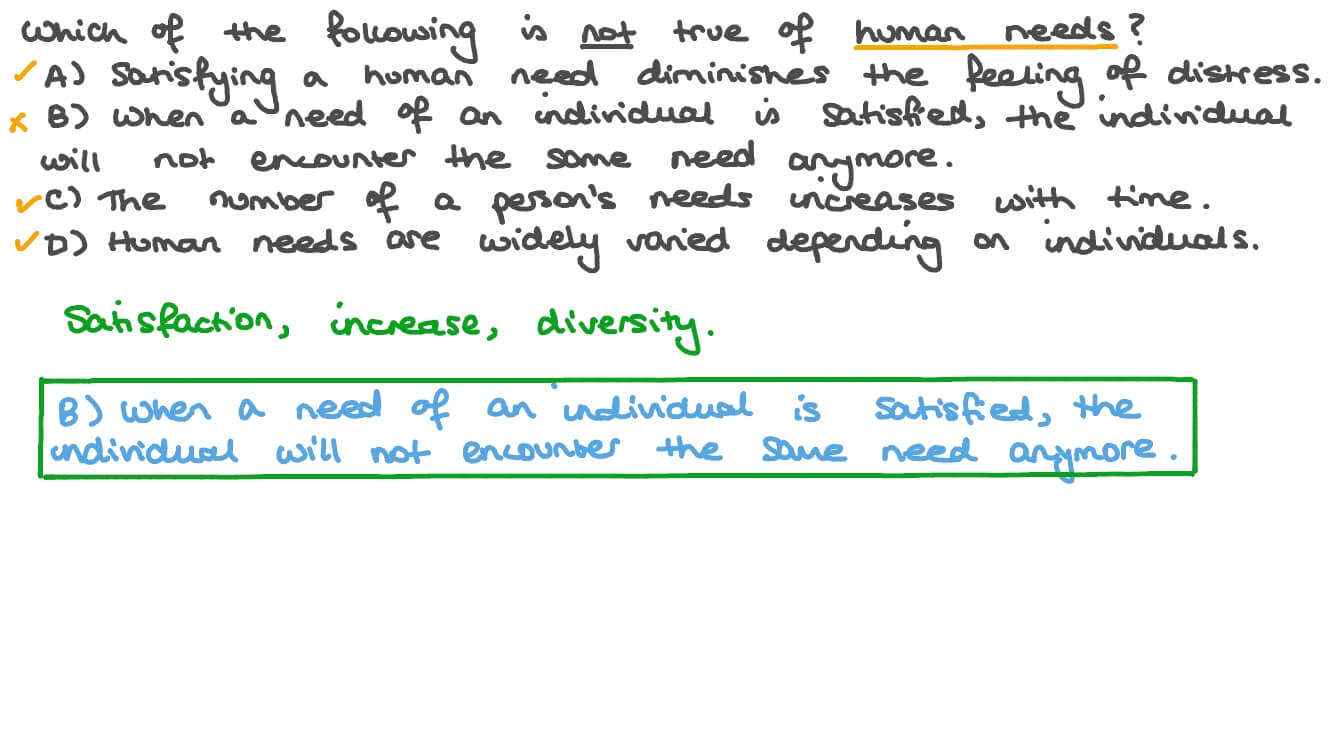 Which of the following is not true of human needs?
✓ A) Satisfying a human need diminishes the feeling of distress.
× B) When a need of an individual is satisfied, the individual
will not encounter the same need anymore.
✓ C) The number of a person's needs increases with time.
✓ D) Human needs are widely varied depending on individuals.
Satisfaction, increase, diversity.
B) When a need of an individual is satisfied, the
individual will not encounter the same need anymore.